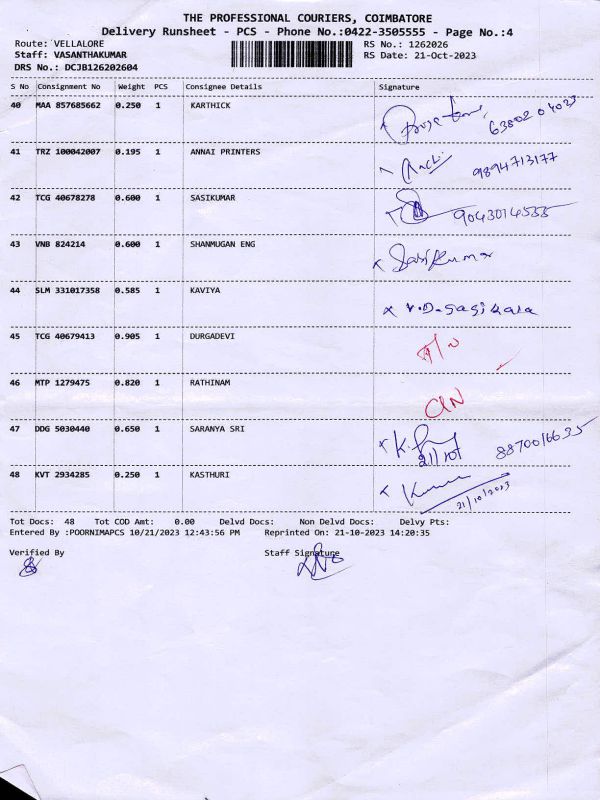 THE PROFESSIONAL COURIERS, COIMBATORE
Delivery Runsheet - PCS - Phone No.:0422-3505555 - Page No.:4
Route: VELLALORE RS No.: 1262026
Staff: VASANTHAKUMAR RS Date: 21-Oct-2023
DRS No.: DCJB126202604
S No Consignment No Weight PCS Consignee Details Signature
40 MAA 857685662 0.250 1 KARTHICK
41 TRZ 100042007 0.195 1 ANNAI PRINTERS 9894713177
42 TCG 40678278 0.600 1 SASIKUMAR
43 VNB 824214 0.600 1 SHANMUGAN ENG Sasikumar
44 SLM 331017358 0.585 1 KAVIYA V.D.Sasikala
45 TCG 40679413 0.905 1 DURGADEVI
46 MTP 1279475 0.820 1 RATHINAM
47 DDG 5030440 0.650 1 SARANYA SRI 21/10 8870016635
48 KVT 2934285 0.250 1 KASTHURI 21/10/2023
Tot Docs: 48 Tot COD Amt: 0.00 Delvd Docs: Non Delvd Docs: Delvy Pts:
Entered By :POORNIMAPCS 10/21/2023 12:43:56 PM Reprinted On: 21-10-2023 14:20:35
Verified By Staff Signature